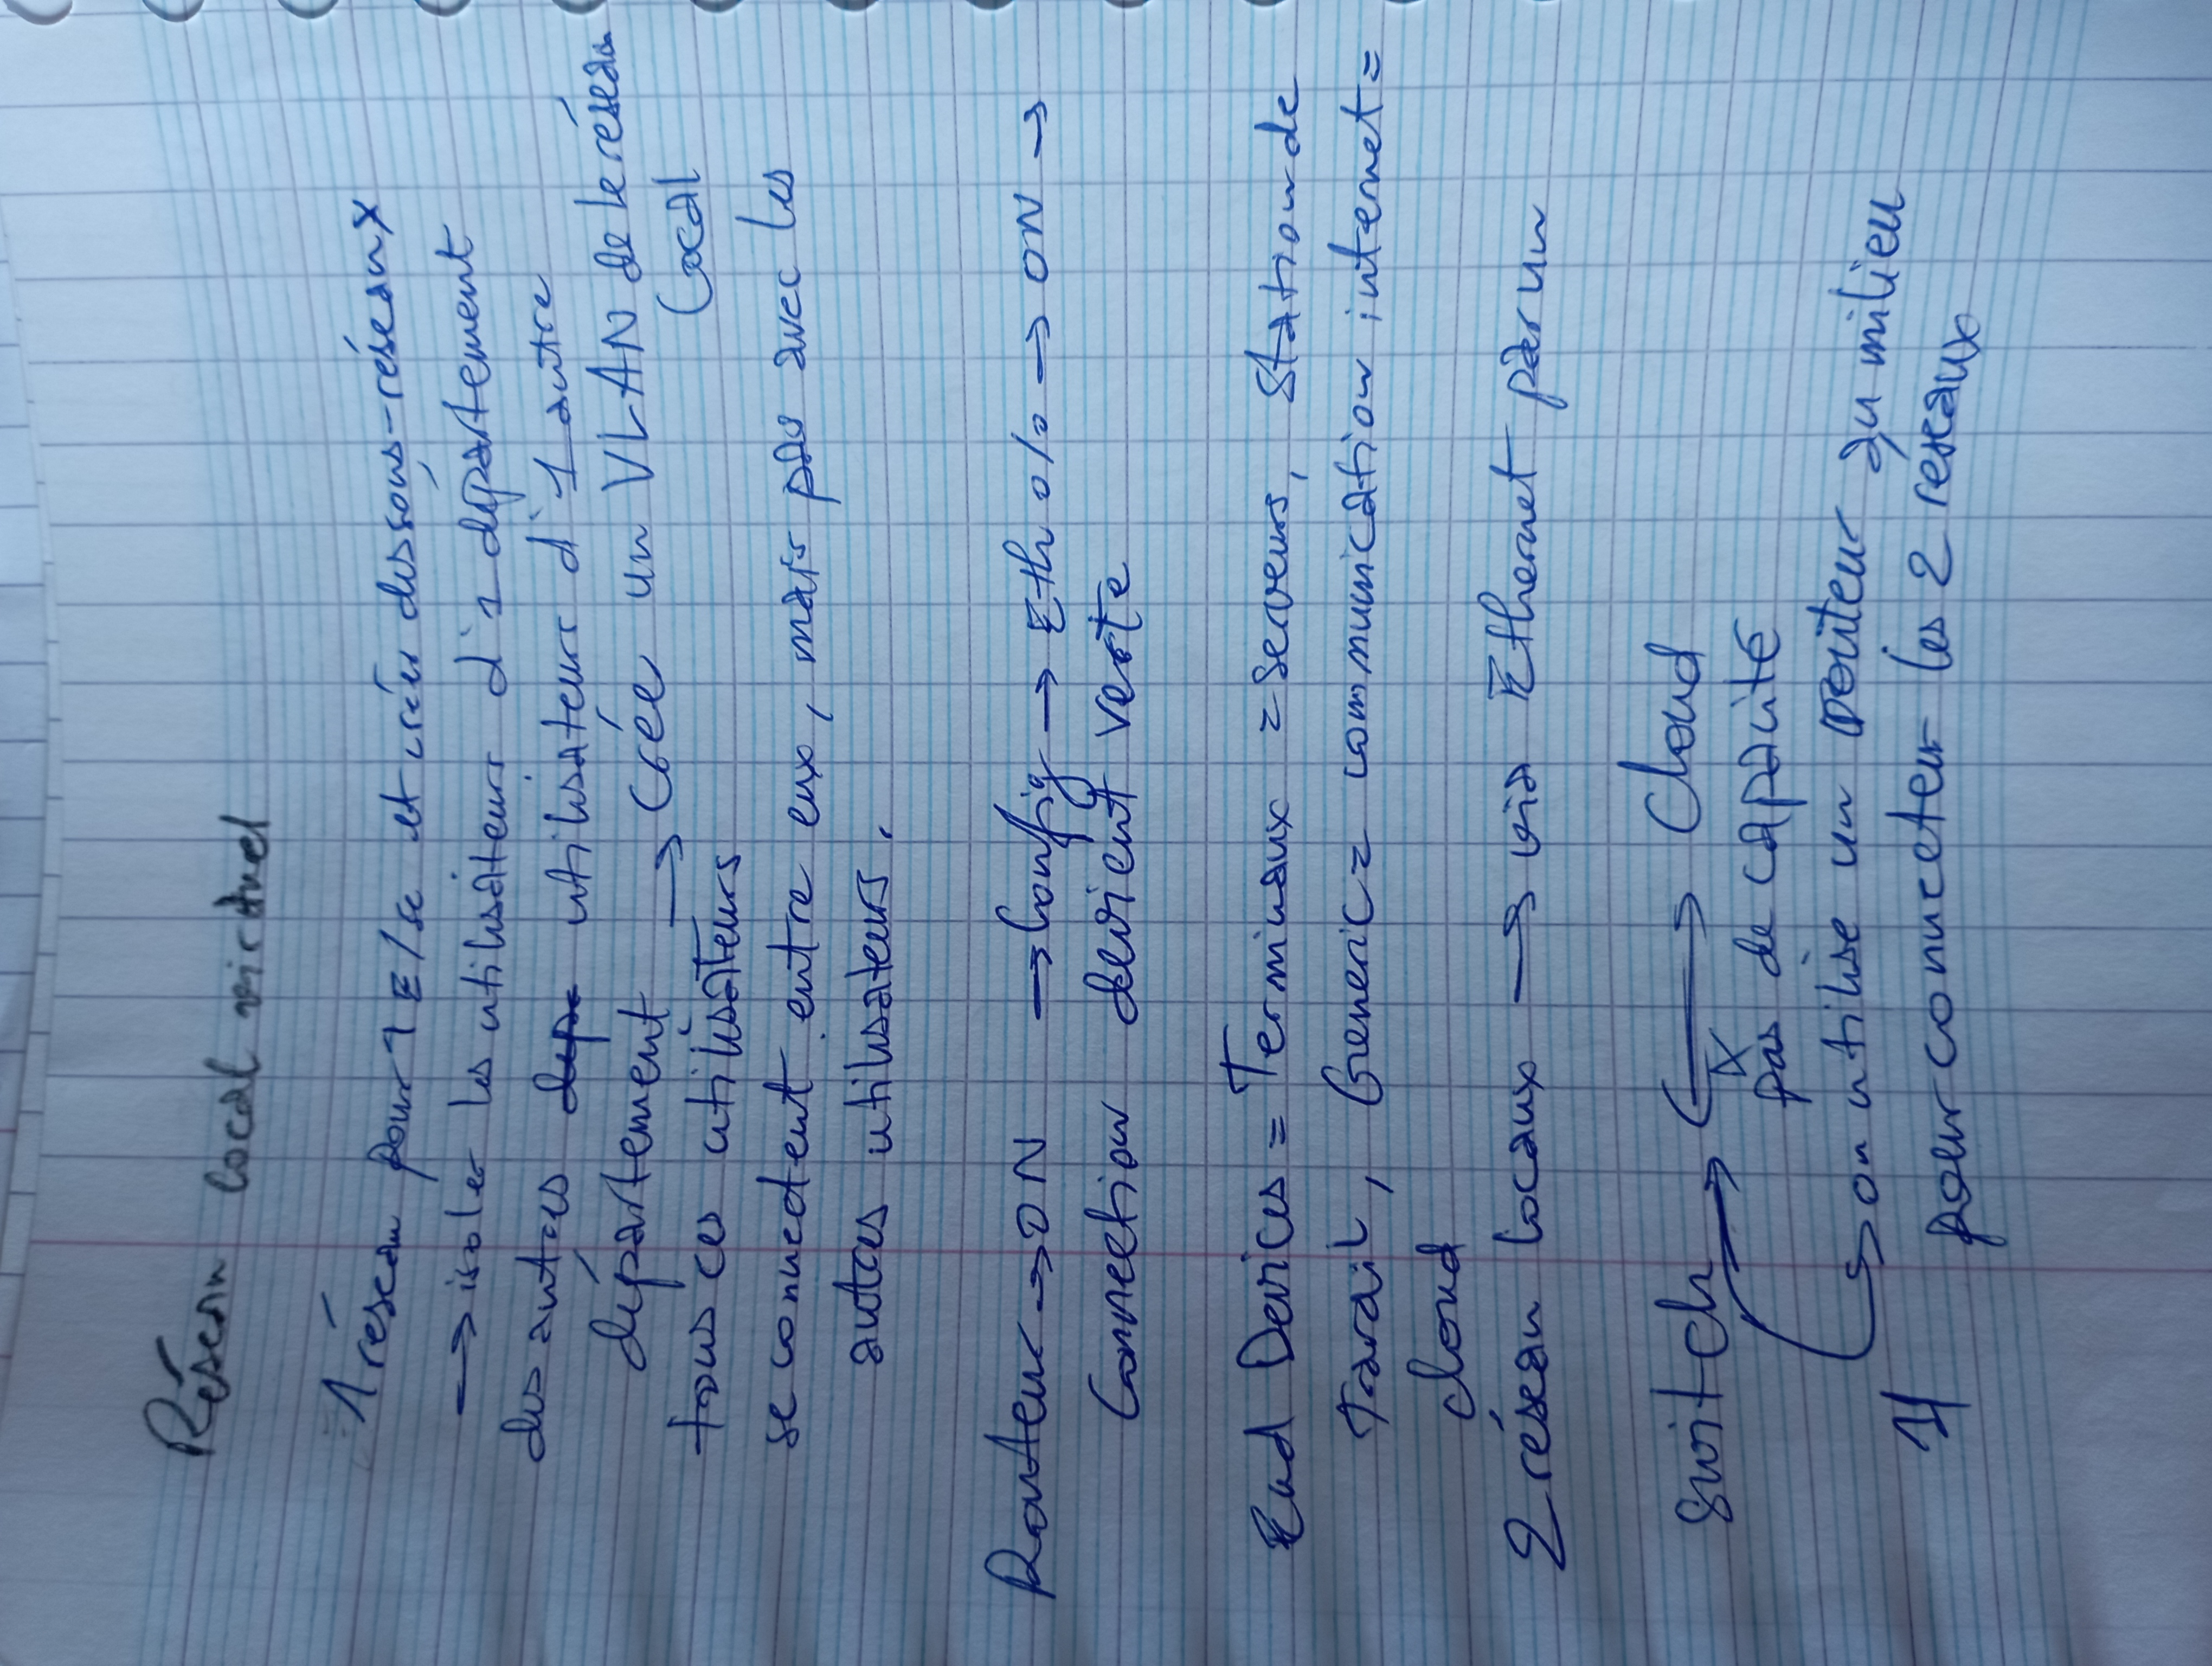 Réseau local virtuel
1 réseau pour 1 E/se et créer des sous-réseaux
→ isoler les utilisateurs d'1 département
des autres utilisateurs d'1 autre
département → Crée un VLAN de le réseau
local
tous ces utilisateurs
se connectent entre eux, mais pas avec les
autres utilisateurs.
Routeur → ON → Config → Eth 0/0 → ON →
Connection devient verte
End Devices = Terminaux = serveurs, Station de
Travail, Generic = communication internet =
cloud
2 réseau locaux → via Ethernet par un
switch → Cloud
pas de capacité
→ on utilise un routeur au milieu
pour connecter les 2 réseaux